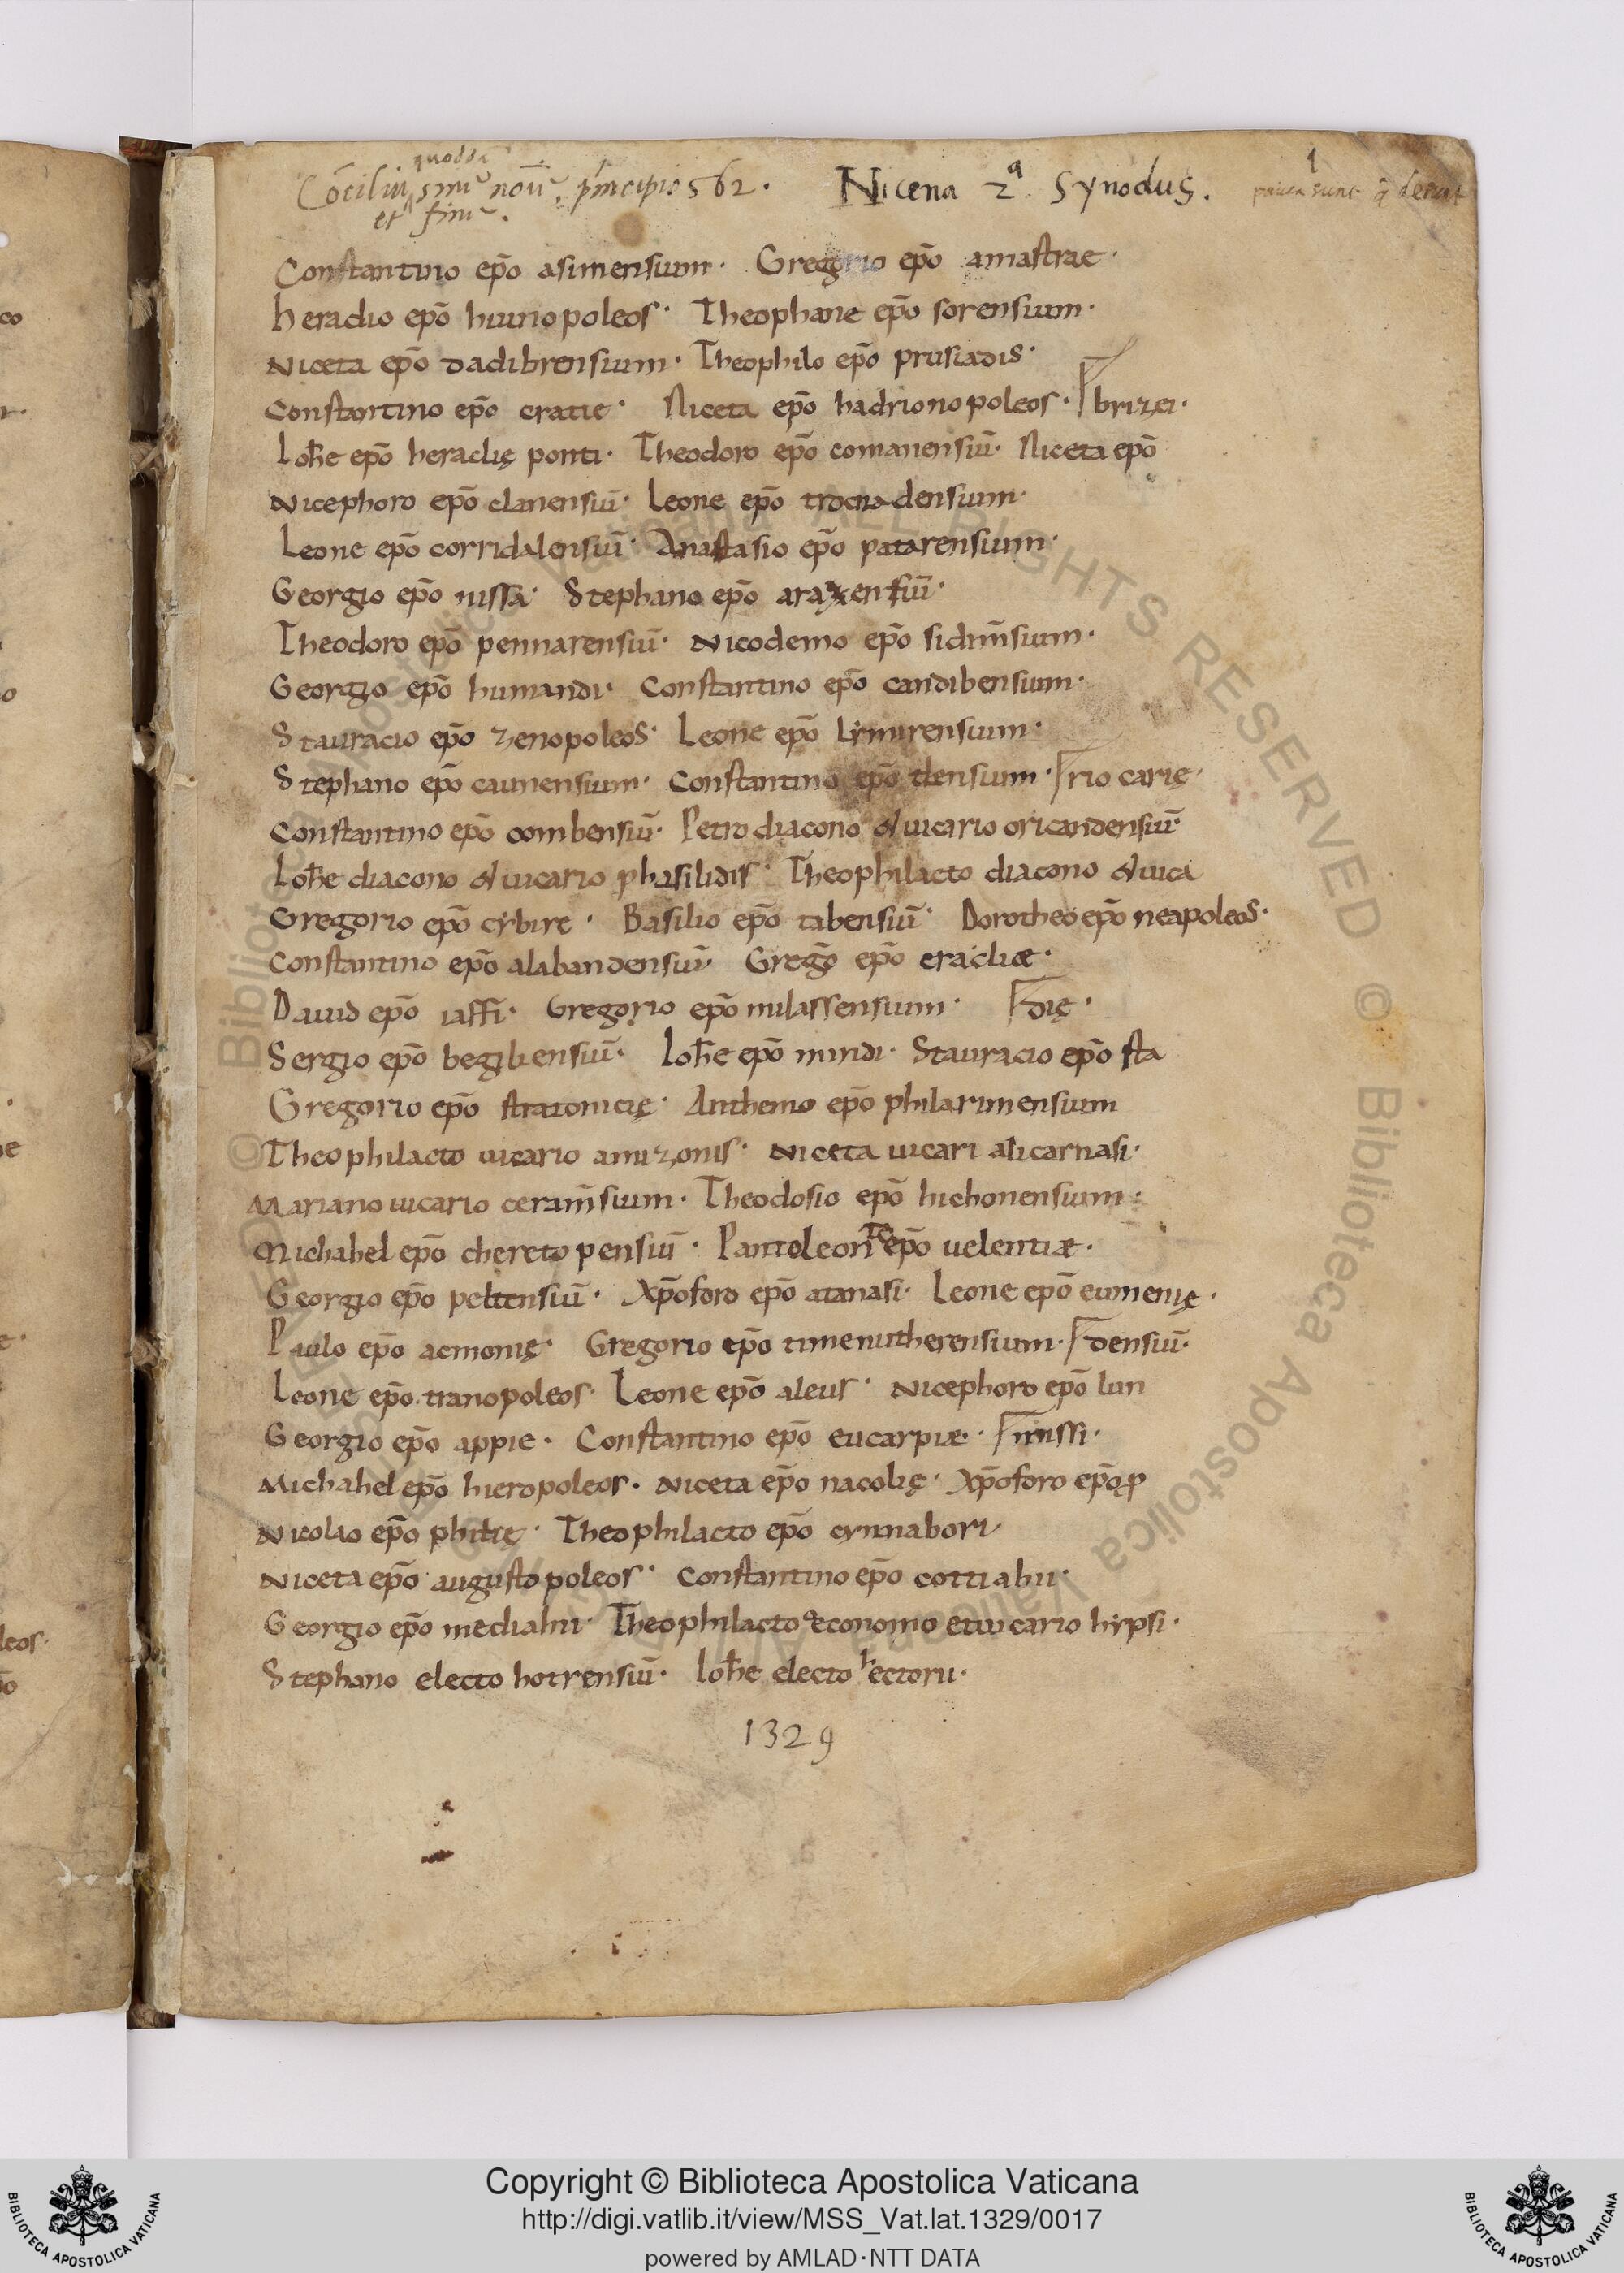 quoddā
Cōciliū sine noīe, prīncipio 562.
et fine.
Nicena 2ª. Synodus.
1
pauca sunt q̄ desunt
Constantino ep̄o asinensium· Gregorio ep̄o amastrae·
heraclio ep̄o huinopoleos· Theophane ep̄o sorensium·
Niceta ep̄o dadibrensium· Theophilo ep̄o prusiadis·
Constantino ep̄o cratie· Niceta ep̄o hadrionopoleos· brizei·
Ioh̄e ep̄o heraclię ponti· Theodoro ep̄o comanensiū· Niceta ep̄o
Nicephoro ep̄o clanensiū· Leone ep̄o trocnadensium·
Leone ep̄o corridalensiū· Anastasio ep̄o patarensium·
Georgio ep̄o nissā· Stephano ep̄o araxensiū·
Theodoro ep̄o pennarensiū· Nicodemo ep̄o sidim̄sium·
Georgio ep̄o humandi· Constantino ep̄o candibensium·
Stauracio ep̄o zenopoleos· Leone ep̄o lymirensium·
Stephano ep̄o caunensium· Constantino ep̄o tlensium· rio carię·
Constantino ep̄o combensiū· Petro diacono & uicario oricandensiū·
Ioh̄e diacono & uicario phasilidis· Theophilacto diacono & uica
Gregorio ep̄o cybire· Basilio ep̄o tabensiū· Dorotheo ep̄o neapoleos·
Constantino ep̄o alabandensiū· Greḡo ep̄o eracliæ·
Dauid ep̄o iassī· Gregorio ep̄o milassensium· dię·
Sergio ep̄o begiliensiū· Ioh̄e ep̄o mindi· Stauracio ep̄o sta
Gregorio ep̄o stratonicię· Anthemo ep̄o philarimensium
Theophilacto uicario amizonis· Niceta uicari alicarnasi·
Mariano uicario ceram̄sium· Theodosio ep̄o hichonensium·
Michahel ep̄o cheretopensiū· Pantoleonte ep̄o uelentiæ·
Georgio ep̄o peltensiū· Xp̄oforo ep̄o atanasi· Leone ep̄o eumenię·
Paulo ep̄o acmonię· Gregorio ep̄o timenutherensium· densiū·
Leone ep̄o tranopoleos· Leone ep̄o aleus· Nicephoro ep̄o lun
Georgio ep̄o appie· Constantino ep̄o eucarpiæ· imissi·
Michahel ep̄o hieropoleos· Niceta ep̄o nacolię· Xp̄oforo ep̄o p
Nicolao ep̄o philię· Theophilacto ep̄o cynnabori
Niceta ep̄o augustopoleos· Constantino ep̄o cottiahii·
Georgio ep̄o mediahii· Theophilacto economo et uicario hypsi·
Stephano electo hotrensiū· Ioh̄e electo hectoru·
1329
Copyright © Biblioteca Apostolica Vaticana
http://digi.vatlib.it/view/MSS_Vat.lat.1329/0017
powered by AMLAD·NTT DATA
BIBLIOTECA APOSTOLICA VATICANA
BIBLIOTECA APOSTOLICA VATICANA